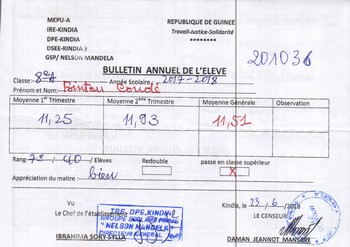 MEPU-A
IRE-KINDIA
DPE-KINDIA
DSEE-KINDIA 3
GSP/ NELSON MANDELA
REPUBLIQUE DE GUINEE
Travail-Justice-Solidarité
********
201036
BULLETIN ANNUEL DE L'ELEVE
Classe: 8e A Année Scolaire 2017-2018
Prénom et Nom: Fointou Condé
Moyenne 1er Trimestre Moyenne 2ème Trimestre Moyenne Générale Observation
11,25 11,93 11,51
Rang 7e / 40 / Elèves Redouble passe en classe supérieur
X
Appréciation du maitre: bien
Vu
Le Chef de l'établissement
IRE.DPE.KINDIA
GROUPE SCOLAIRE PRIVE
"NELSON MANDELA"
DIRECTEUR GENERAL
IBRAHIMA SORY SYLLA
Kindia, le 23/6/2018
LE CENSEUR
DAMAN JEANNOT MANSARE